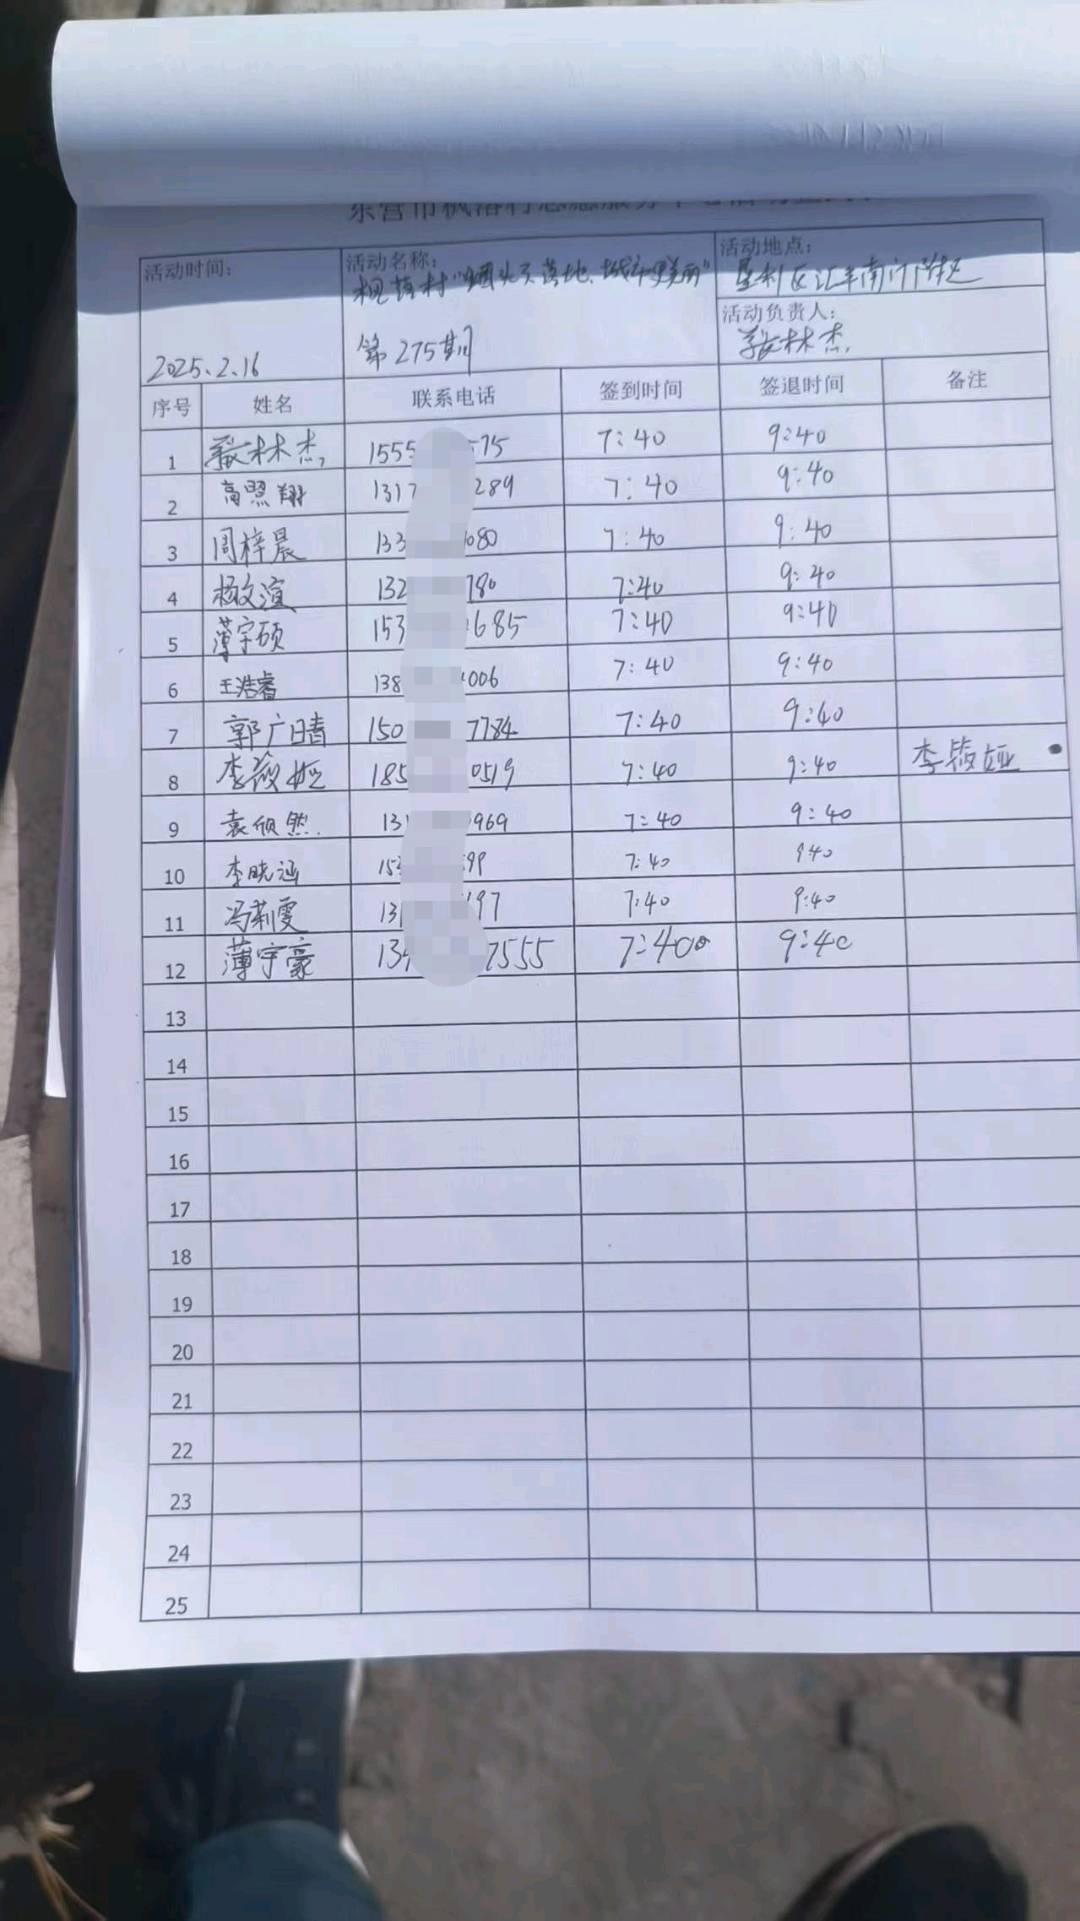 活动时间: 活动名称: 活动地点:
村"烟头不落地、城市更美丽" 垦利区汇丰南门附近
活动负责人:
2025.2.16 第275期 林杰
序号 姓名 联系电话 签到时间 签退时间 备注
1 林杰 1555 575 7:40 9:40
2 高照翔 1317 289 7:40 9:40
3 周梓晨 133 080 7:40 9:40
4 杨文渲 132 780 7:40 9:40
5 薄宇硕 153 685 7:40 9:40
6 王浩睿 138 006 7:40 9:40
7 郭广晴 150 7784 7:40 9:40
8 李筱娅 185 0519 7:40 9:40 李筱娅
9 袁欣然 131 969 7:40 9:40
10 李晓涵 153 99 7:40 9:40
11 冯莉雯 131 97 7:40 9:40
12 薄宇豪 134 7555 7:40 9:40
13
14
15
16
17
18
19
20
21
22
23
24
25